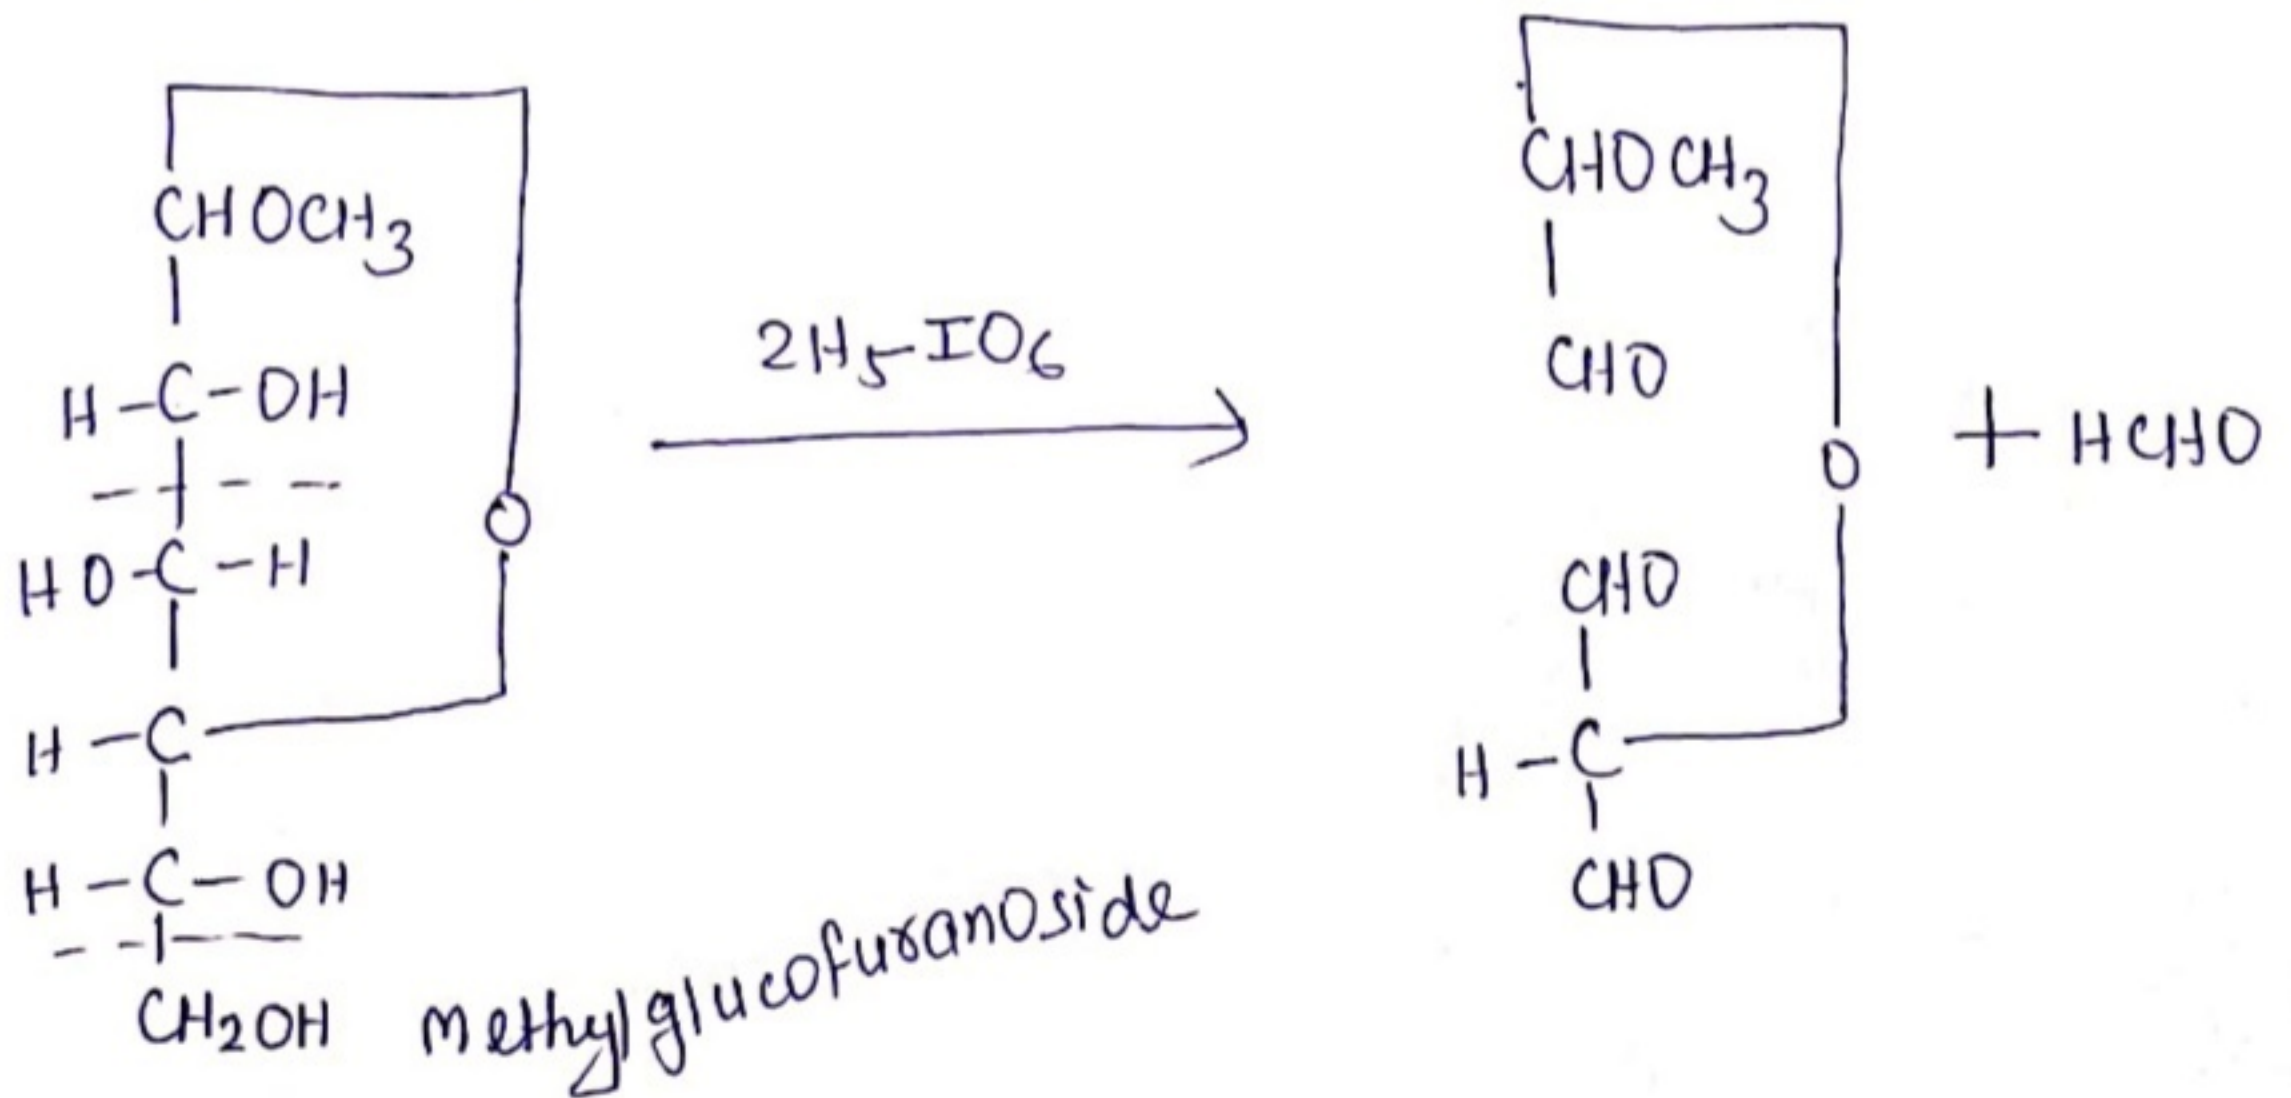 CHOCH3
H-C-OH
HO-C-H
O
H-C
H-C-OH
CH2OH
methylglucofuranoside
2H5-IO6
CHOCH3
CHO
O
CHO
H-C
CHO
+ HCHO